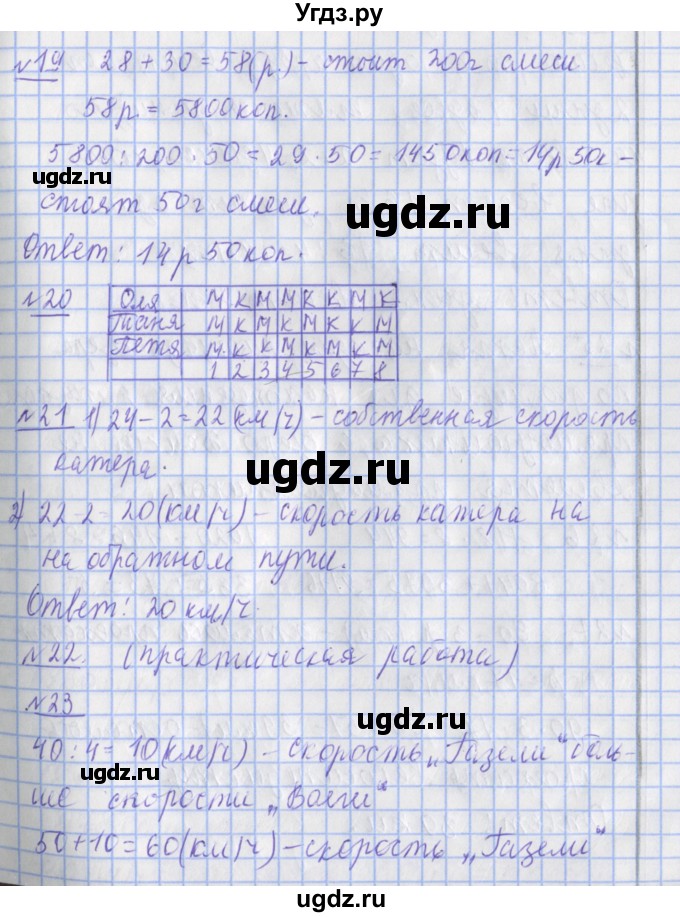 Угдз.ру
№19 28 + 30 = 58(р.) - стоит 200г смеси
58р. = 5800коп.
5800 : 200 · 50 = 29 · 50 = 1450коп = 14р 50к -
www.ugdz.ru
стоят 50г смеси.
ugdz.ru
Ответ: 14р 50коп.
№20
Оля М К М М К К М К
Таня М К М М К М К М
Петя М К К М М К К М
1 2 3 4 5 6 7 8
№21 1) 24 - 2 = 22(км/ч) - собственная скорость
катера.
ugdz.ru
2) 22 - 2 = 20(км/ч) - скорость катера на
на обратном пути.
Ответ: 20 км/ч.
№22. (практическая работа)
№23
ugdz.ru
40 : 4 = 10(км/ч) - скорость „Газели“ боль-
www.ugdz.ru
ше скорости „Волги“
50 + 10 = 60(км/ч) - скорость „Газели“
www.ugdz.ru